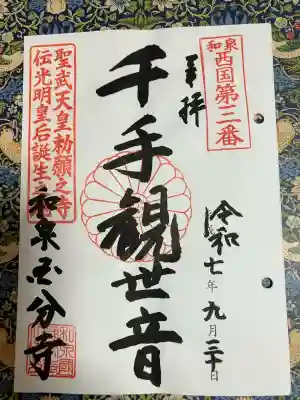 和泉
西国第三番
奉拝
令和七年九月二十日
千手観世音
聖武天皇勅願之寺
伝光明皇后誕生之
和泉国分寺